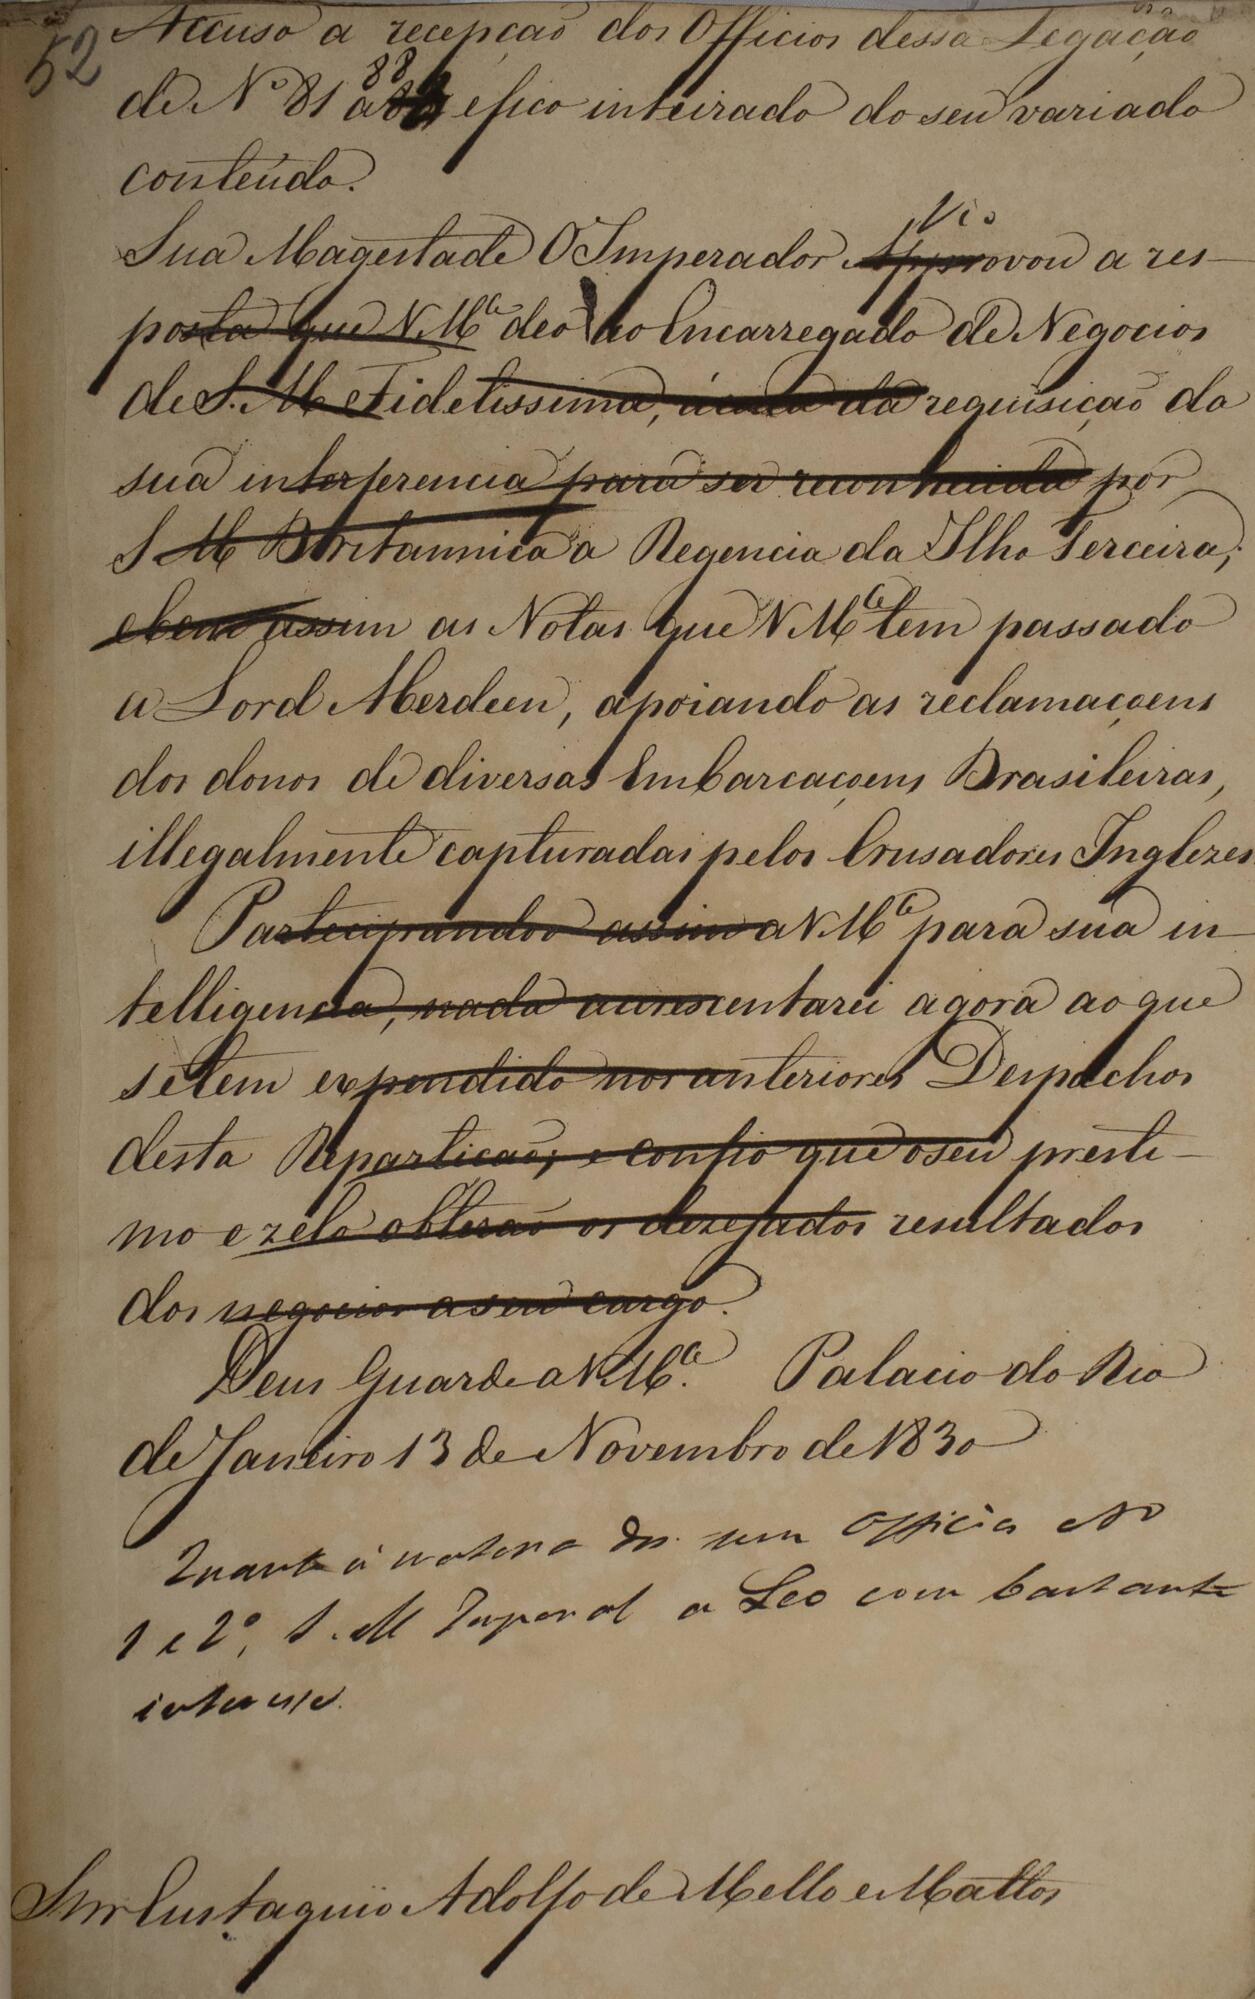 52 Accuso a recepção dos Officios dessa Legação
88
de Nº 81 a e fico inteirado do seu variado
conteúdo.
Vio
Sua Magestade O Imperador Approvou a res-
posta que V Mce deo ao Encarregado de Negocios
de S. M. Fidelissima, ácerca da requisição da
sua interferencia para ser reconhecida por
S M Britannica a Regencia da Ilha Terceira;
e bem assim as Notas que V Mce tem passado
a Lord Aberdeen, apoiando as reclamaçoens
dos donos de diversas Embarcaçoens Brasileiras,
illegalmente capturadas pelos Crusadores Inglezes
Partecipando o assim a V Mce para sua in-
telligencia, nada accrescentarei agora ao que
se tem expendido nos anteriores Despachos
desta Repartição; e confio que o seu presti-
mo e zelo obterão os dezejados resultados
dos negocios a seu cargo.
Deus Guarde a V Mce. Palacio do Rio
de Janeiro 13 de Novembro de 1830
Quanto á materia dos seus Officios Nº
1 e 2º, S. M Imperial a Leo com bastante
interesse.
Snr Eustaquio Adolfo de Mello e Mattos